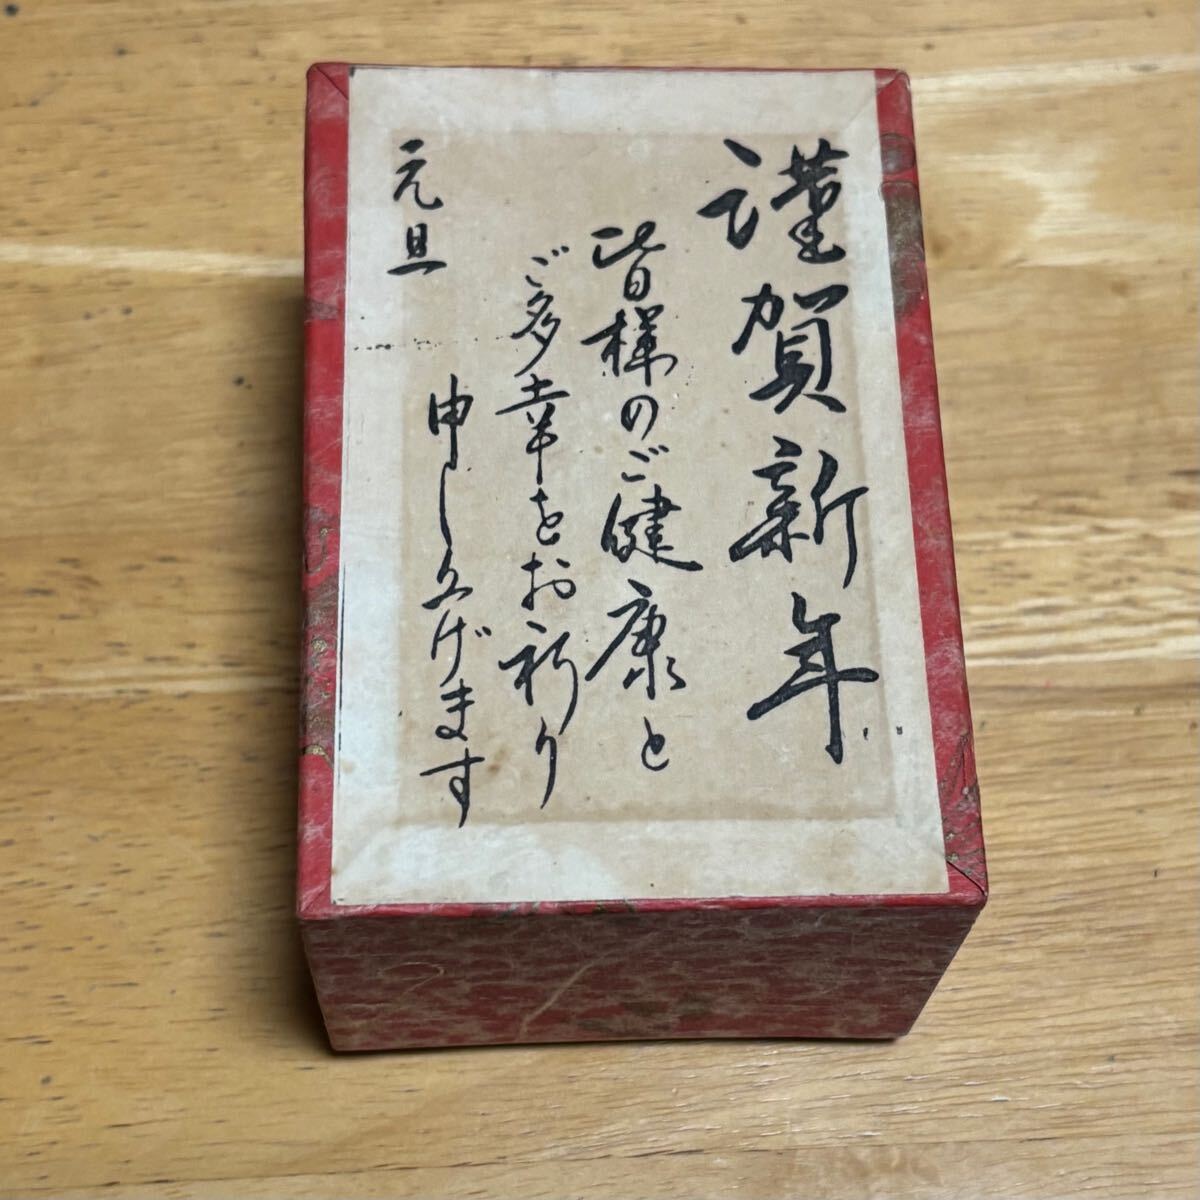 謹賀新年
皆様のご健康と
ご多幸をお祈り
申し上げます
元旦